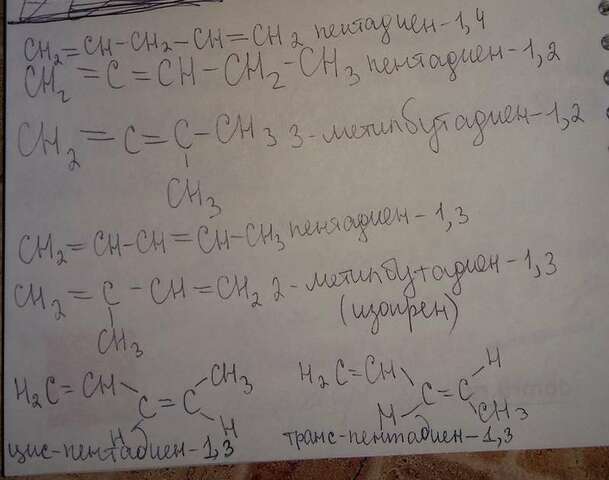 CH₂=CH-CH₂-CH=CH₂ пентадиен-1,4
CH₂=C=CH-CH₂-CH₃ пентадиен-1,2
CH₂=C=C-CH₃ 3-метилбутадиен-1,2
CH₃
CH₂=CH-CH=CH-CH₃ пентадиен-1,3
CH₂=C-CH=CH₂ 2-метилбутадиен-1,3
CH₃ (изопрен)
H₂C=CH CH₃ H₂C=CH H
C=C C=C
H H H CH₃
цис-пентадиен-1,3 транс-пентадиен-1,3